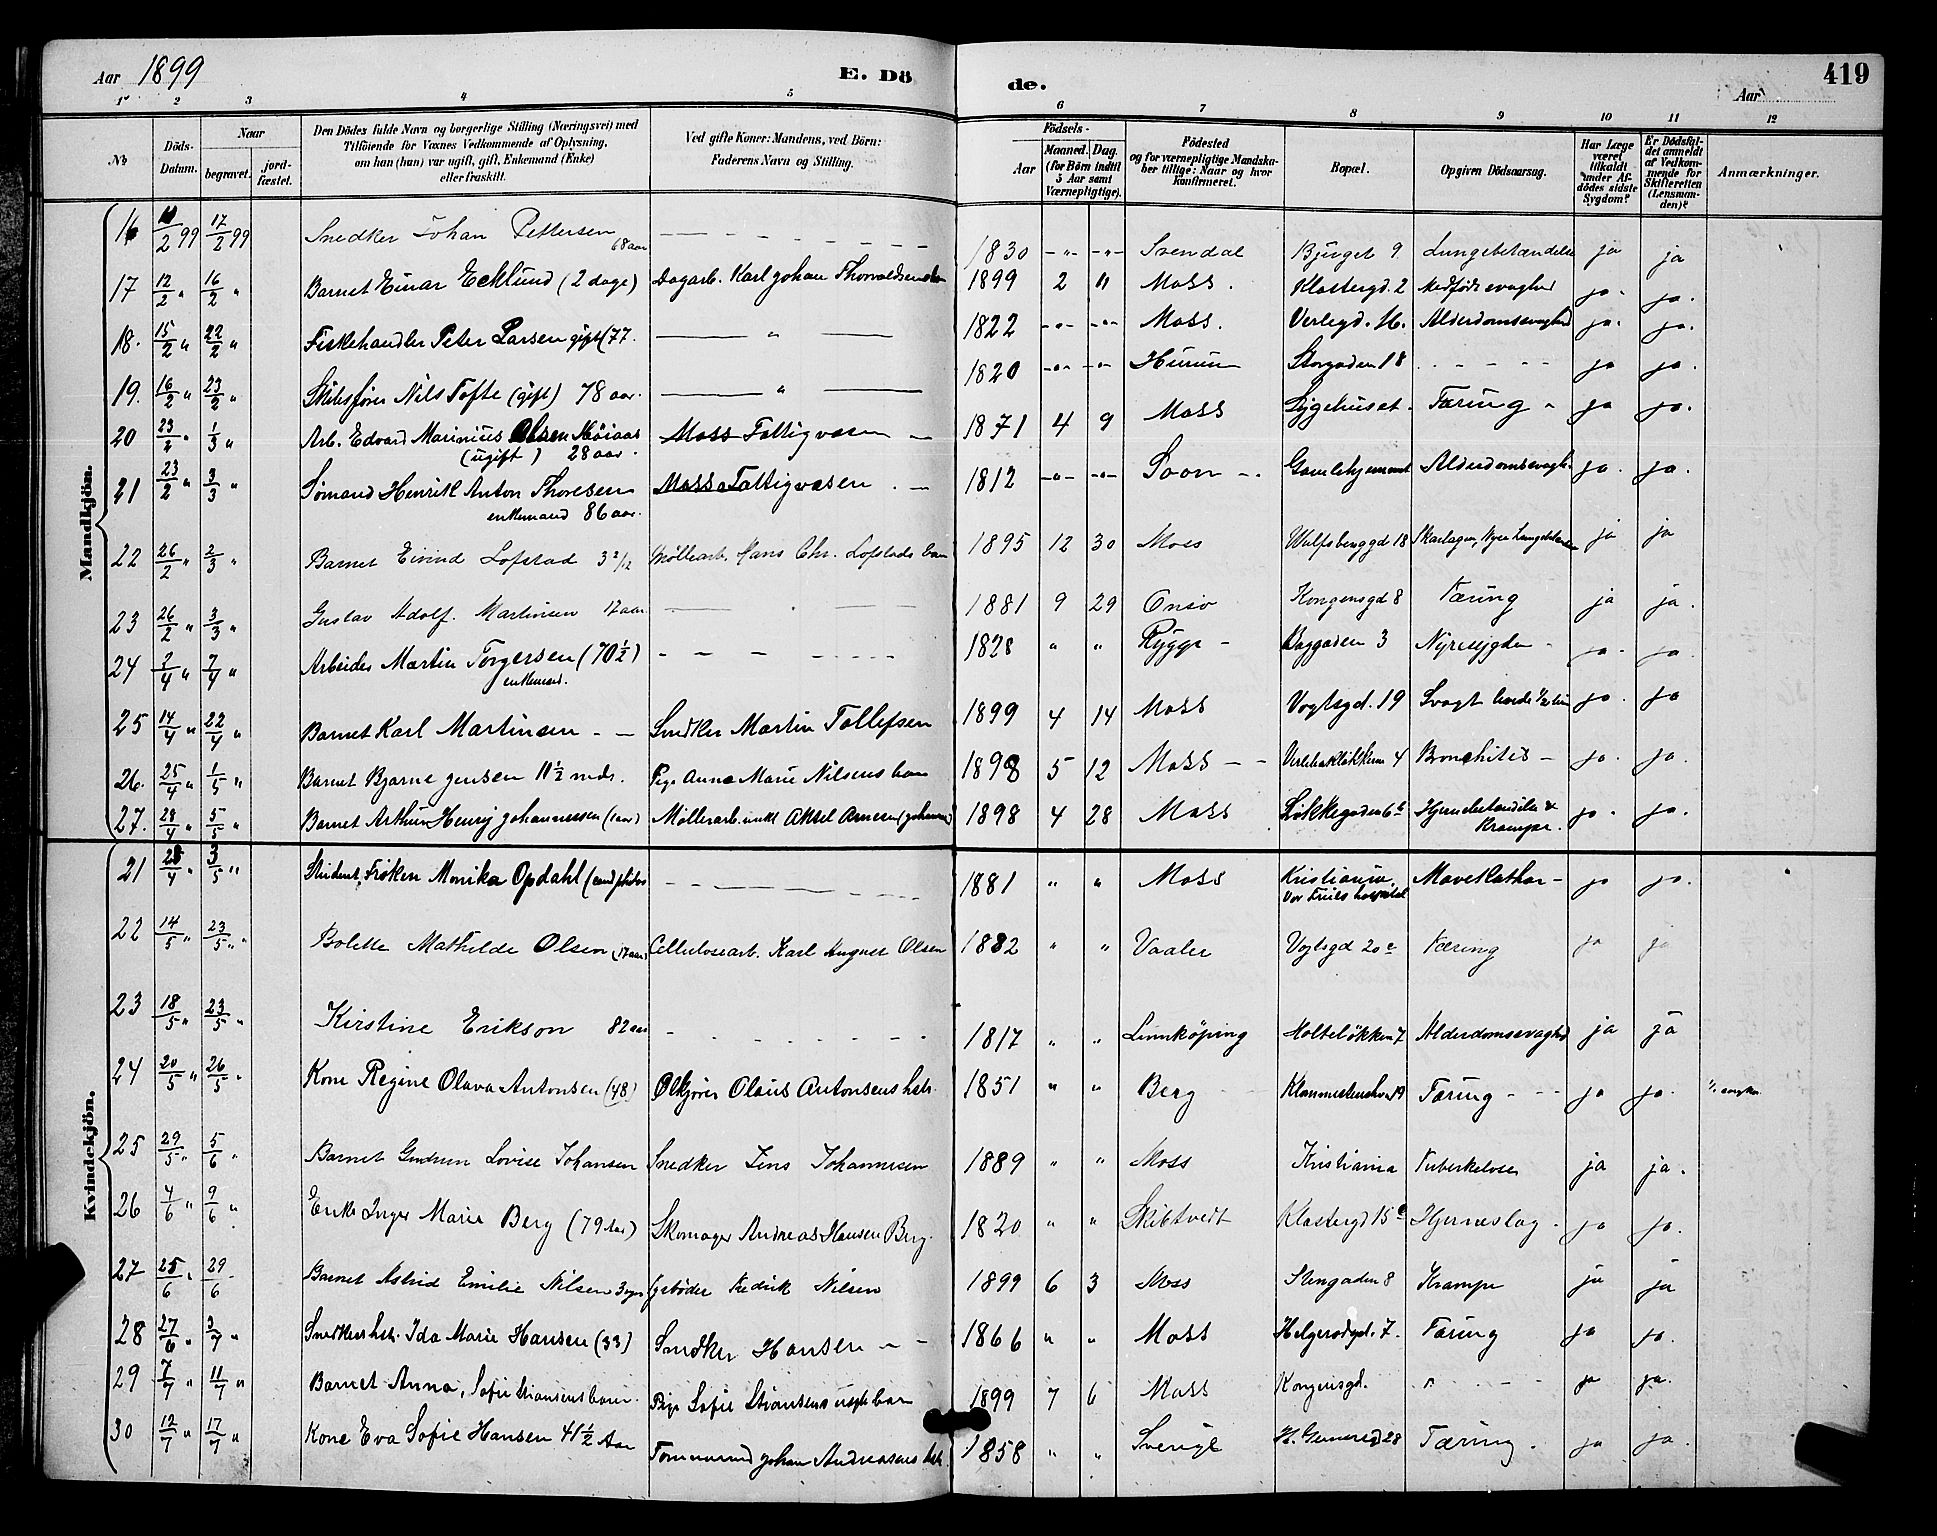 Aar 1899 E. Dö de. Aar 419
1 2 3 4 5 6 7 8 9 10 11 12
No
Döds-Datum.
Naar
begravet.
jord-fæstet.
Den Dödes fulde Navn og borgerlige Stilling (Næringsvei) med
Tilföiende for Voxnes Vedkommende af Oplysning,
om han (hun) var ugift, gift, Enkemand (Enke)
eller fraskilt.
Ved gifte Koner: Mandens, ved Börn:
Faderens Navn og Stilling.
Födsels-
Aar
Maaned. Dag.
(for Börn indtil
5 Aar samt
Værnepligtige).
Födested
og for værnepligtige Mandska-
ber tillige: Naar og hvor
konfirmeret.
Bopæl.
Opgiven Dödsaarsag.
Har Læge
været
tilkaldt
under Af-
dödes sidste
Sygdom?
Er Dödsfal-
det anmeldt
af Vedkom-
mende for
Skifteretten
(Lensman-
den)?
Anmærkninger.
Mandkjön.
16 2 99 17/2 99 Snedker Johan Pettersen 68 aar 1830 Svendal Bjerget 9 Lungebetændelse ja ja
17 12/2 " 16/2 " Barnet Einar Ecklund (2 dage) Dagarb. Karl Johan Thorvaldsen 1899 2 " Moss. Klostergd. 2 Medfödt svaghed ja. ja.
18. 15/2 " 22/2 " Fiskehandler Peter Larsen gift (77. " 1822 Moss. Verlegd. 16. Alderdomssvaghed ja. ja.
19. 16/2 " 23/2 " Skibsfører Nils Tofte (gift) 78 aar. " 1820 Hurum Storgaden 18 ja ja.
20 23/2 " 1/3 " Arb. Edvard Marinius Olsen Höiaas
(ugift) 28 aar. Moss Fattigvæsen 1871 4 9 Moss Sygehuset. Tæring ja ja.
21 23/2 3/3 " Sømand Henrik Anton Thoresen
enkemand 86 aar. Moss Fattigvæsen. 1812 Soon Gamlehjemmet Alderdomssvagh. ja. ja.
22 26/2 " 2/3 " Barnet Eivind Lofstad 3 2/12 Møllearb. Hans Chr. Lofstads barn 1895 12 30 Moss Wulfsberggd 18 Skarlagen, Nyre ja ja
23 26/2 " 3/3 " Gustav Adolf. Martinsen 17 aar 1881 9 29 Onsö Kongensgd 8 Tæring ja ja.
24 2/4 " 7/4 " Arbeider Martin Torgersen (70 1/2)
enkemand. 1828 " " Rygge 3 Nyresygdom ja. ja.
25 14/4 " 22/4 " Barnet Karl Martinsen Snedker Martin Tollefsen 1899 4 14 Moss Vogtsgd. 19 Svagt ja. ja
26. 25/4 " 1/5 " Barnet Bjarne Jensen 11 1/2 mdr. Pige Anna Marie Nilsens barn 1898 5 12 Moss 4 Bronchites ja. ja.
27. 28/4 " 5/5 " Barnet Arthur Henry Johannessen (1 aar) Møllerarb. Aksel Arnesen 1898 4 28 Moss Løkkegaden 6 Hjernebetændelse &
Krampe. ja. ja.
Kvindekjön.
21 4 3/5 " Student, Frøken Monika Opdahl (cand philos 1881 " " Moss Kristiania,
Vor Frues hospital Mavekatharr ja ja.
22 14/5 " 23/5 " Bolette Mathilde Olsen (17 aar) Cellulosearb. Karl August Olsen 1882 " " Vaaler Vogtsgd 20 Tæring ja ja
23 18/5 " 23/5 " Kirstine Erikson 82 aar 1817 " " Linnköping Holteløkken 7 Alderdomssvaghed ja ja
24 20/5 " 26/5 " Kone Regine Olava Antonsen (48) Ølkjører Olaus Antonsens hstr. 1851 " " Berg 19 Tæring ja ja.
25 29/5 " 5/6 " Barnet Gudrun Lovise Johansen Snedker Jens Johannesen 1889 " " Moss Kristiania Tuberkelose ja ja.
26 4/6 " 9/6 " Enke Inger Marie Berg (79 aar) Skomager Andreas Hansen Berg. 1820 " " Skibtvedt Klostergd 15 Hjerneslag. ja ja.
27 25/6 " 29/6 Barnet Astrid Emilie Nilsen Nilsen 1899 6 3 Moss Stengaden 8 Krampe ja ja
28 27/6 " 3/7 " Snedkerhstr. Ida Marie Hansen (33) Snedker Hansen 1866 " " Moss Helgerødgd. 7. Tæring ja ja.
29 7/7 " 11/7 " Barnet Anna, Sofie Stiansens barn. Pige Sofie Stiansens barn 1899 7 6 Moss Kongensgd. " ja ja.
30 12/7 " 17/7 " Kone Eva Sofie Hansen 41 1/2 Aar Tømmermand Johan Andreasens hstr. 1858 " " Sverige 28 Tæring. ja ja.